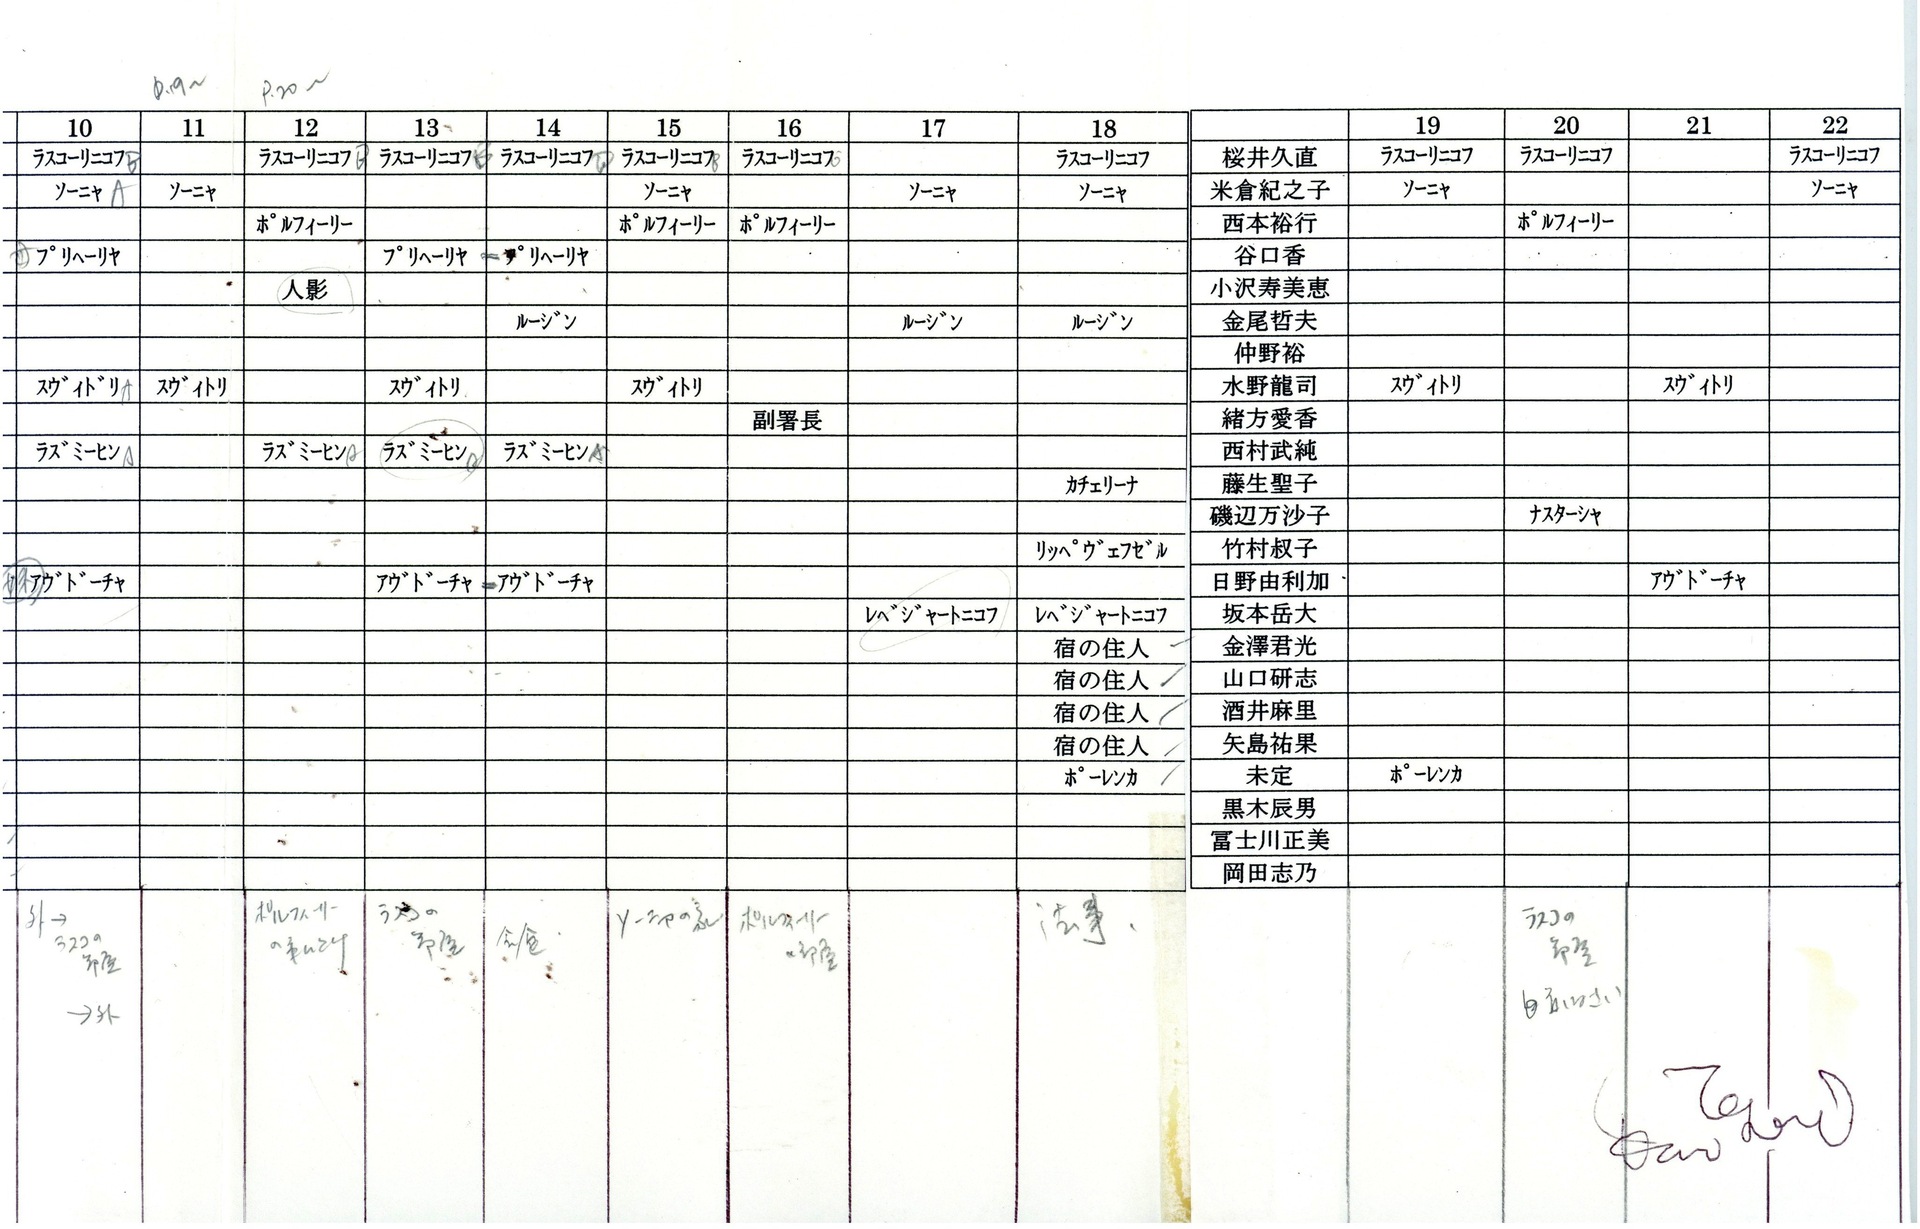 P.19~ P.20~
10 11 12 13 14 15 16 17 18 19 20 21 22
ラスコーリニコフB ラスコーリニコフ ラスコーリニコフ ラスコーリニコフ ラスコーリニコフB ラスコーリニコフ ラスコーリニコフ 桜井久直 ラスコーリニコフ ラスコーリニコフ ラスコーリニコフ
ソーニャ A ソーニャ ソーニャ ソーニャ ソーニャ 米倉紀之子 ソーニャ ソーニャ
ポルフィーリー ポルフィーリー ポルフィーリー 西本裕行 ポルフィーリー
プリヘーリヤ プリヘーリヤ = プリヘーリヤ 谷口香
人影 小沢寿美恵
ルージン ルージン ルージン 金尾哲夫
仲野裕
スヴィドリA スヴィトリ スヴィトリ スヴィトリ 水野龍司 スヴィトリ スヴィトリ
副署長 緒方愛香
ラズミーヒンA ラズミーヒンA ラズミーヒンA ラズミーヒンA 西村武純
カチェリーナ 藤生聖子
磯辺万沙子 ナスターシャ
リッペヴェフゼル 竹村叔子
アヴドーチャ アヴドーチャ = アヴドーチャ 日野由利加 アヴドーチャ
レベジャートニコフ レベジャートニコフ 坂本岳大
宿の住人 金澤君光
宿の住人 山口研志
宿の住人 酒井麻里
宿の住人 矢島祐果
ポーレンカ 未定 ポーレンカ
黒木辰男
冨士川正美
岡田志乃
外→ ポルフィーリー ラスコの ソーニャの家 ポルフィーリー 法事. ラスコの
ラスコの 部屋 の部屋 部屋
部屋
→外